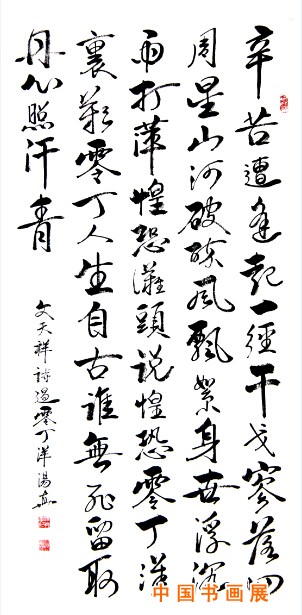 辛苦遭逢起一經干戈寥落四
周星山河破碎風飄絮身世浮沉
雨打萍惶恐灘頭說惶恐零丁洋
裏歎零丁人生自古誰無死留取
丹心照汗青
文天祥詩過零丁洋湯
中国书画展